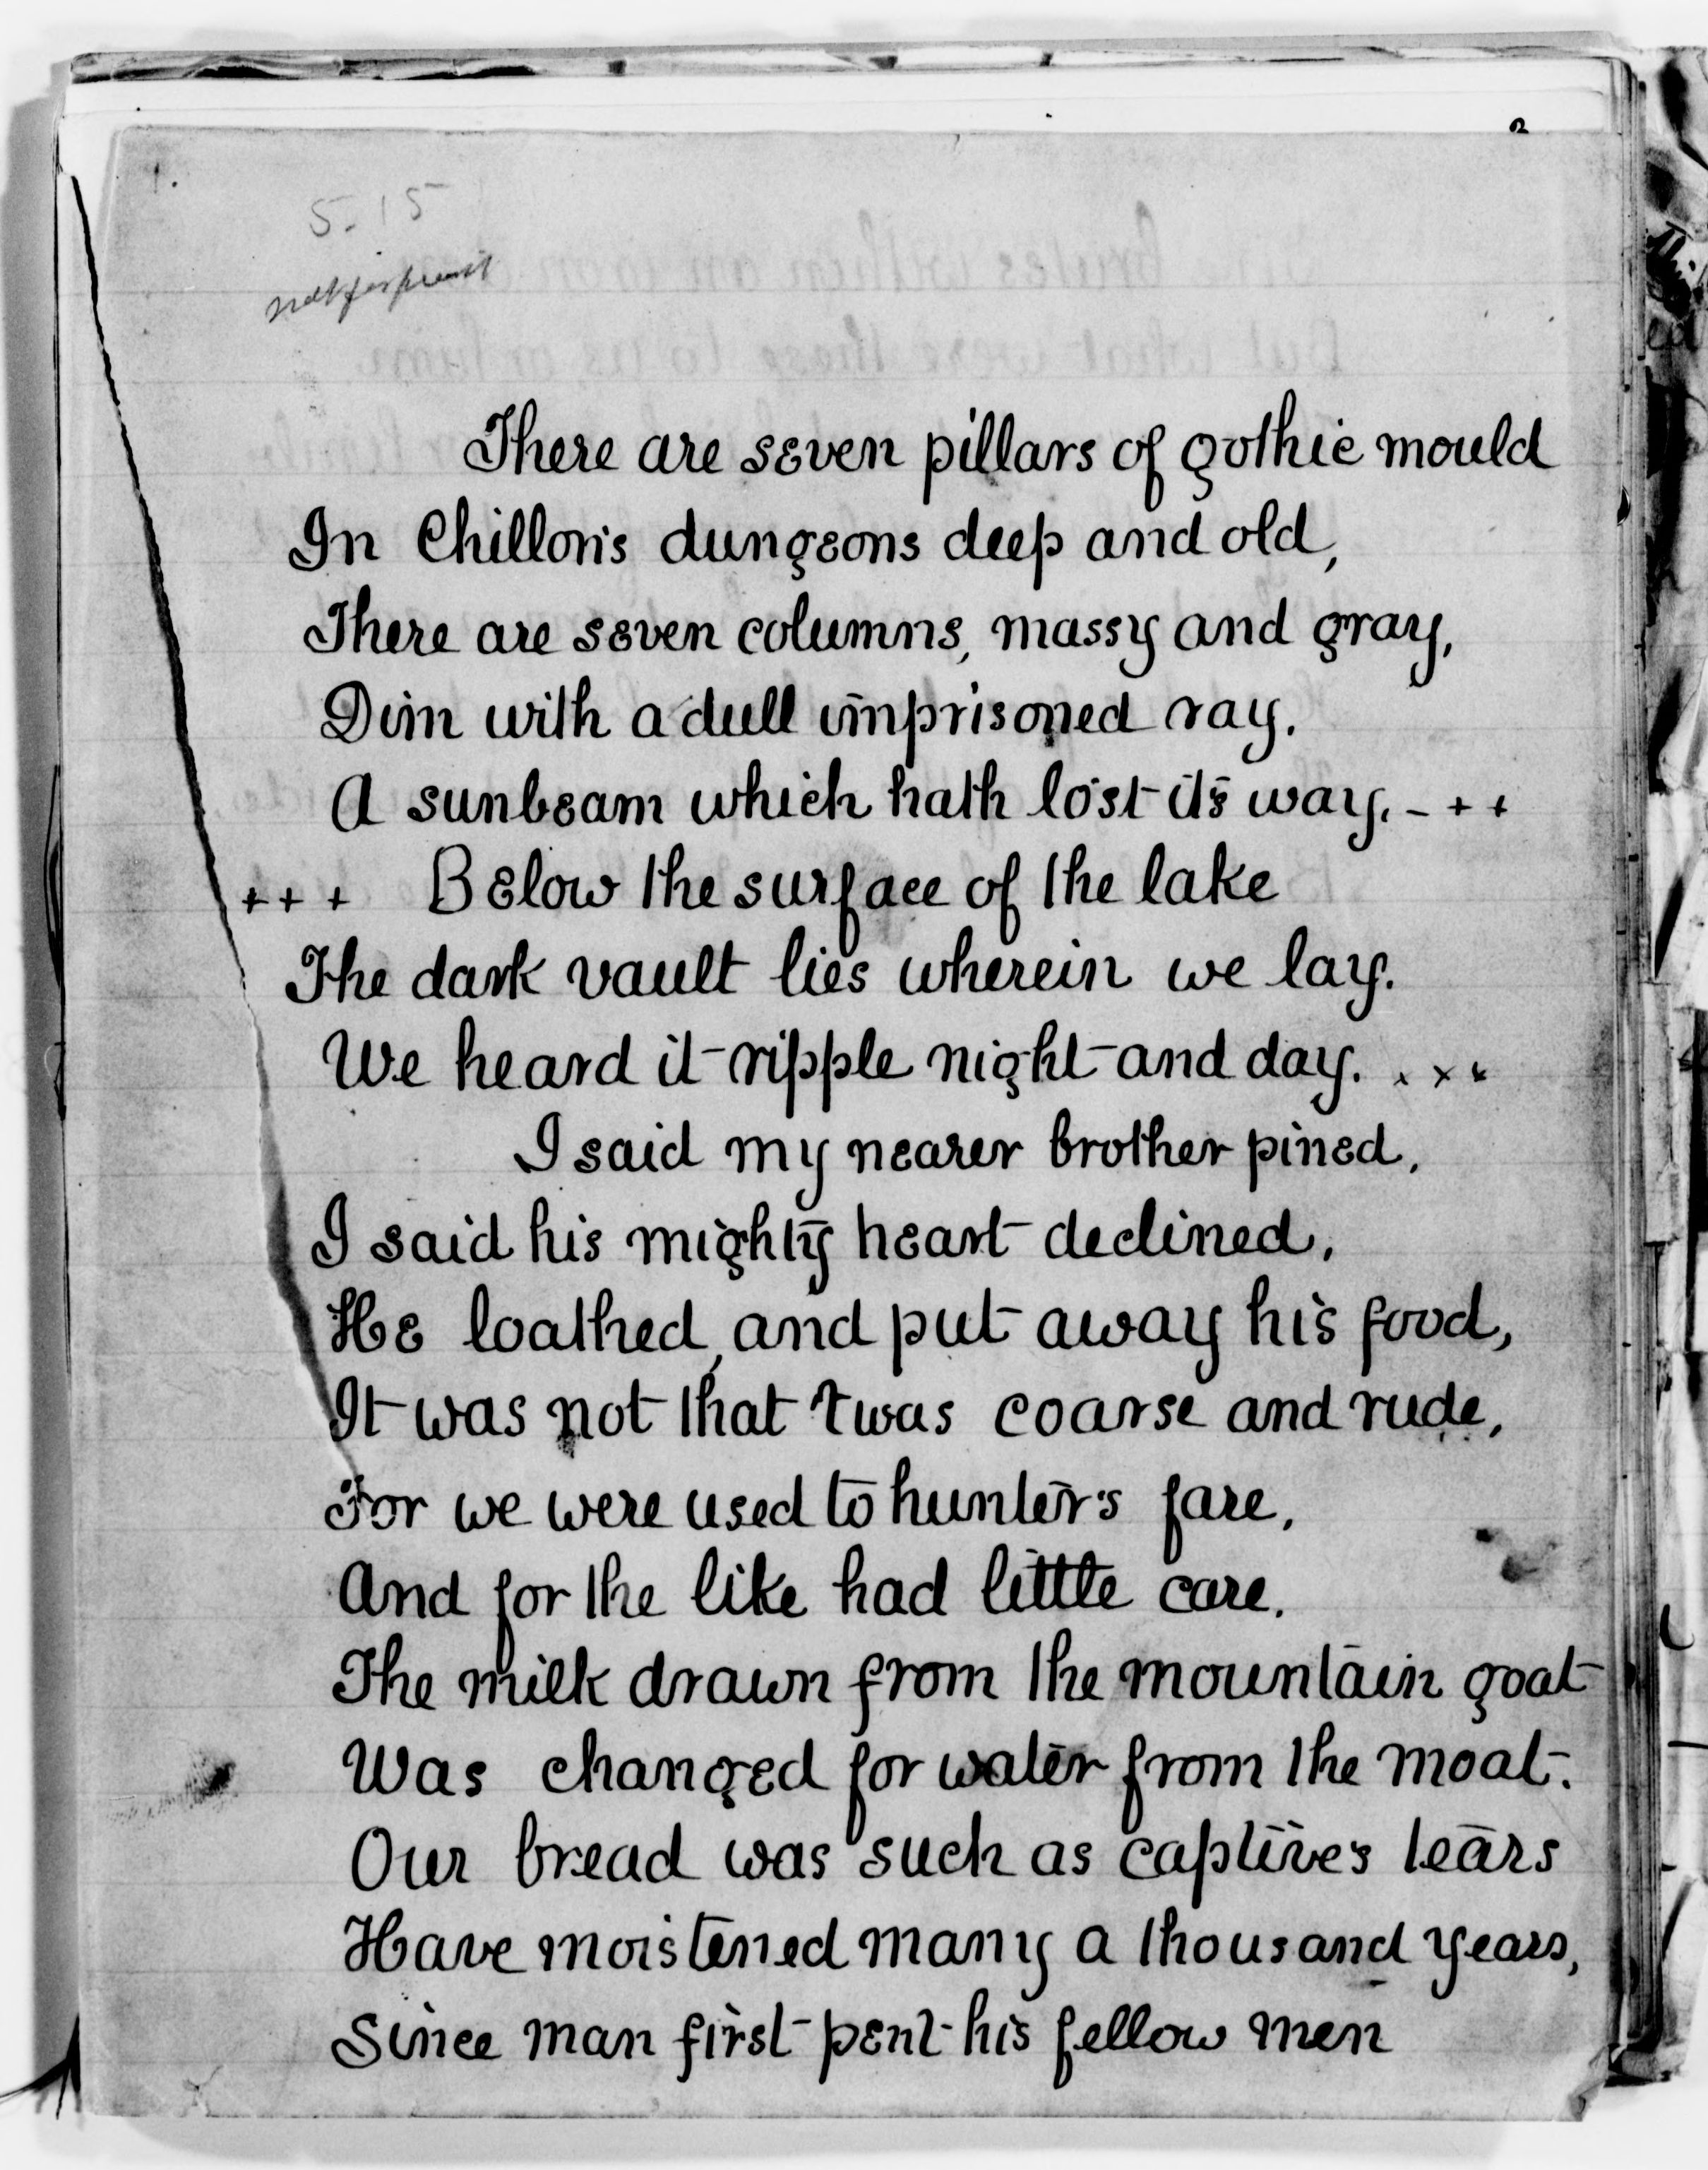 5-15
not for print
There are seven pillars of gothic mould
In Chillon's dungeons deep and old,
There are seven columns, massy and gray,
Dim with a dull imprisoned ray.
A sunbeam which hath lost its way. - + +
+ + + Below the surface of the lake
The dark vault lies wherein we lay.
We heard it ripple night and day. . x x
I said my nearer brother pined,
I said his mighty heart declined,
He loathed, and put away his food,
It was not that 'twas coarse and rude,
For we were used to hunter's fare,
And for the like had little care.
The milk drawn from the mountain goat
Was changed for water from the moat.
Our bread was such as captives tears
Have moistened many a thousand years,
Since man first pent his fellow men